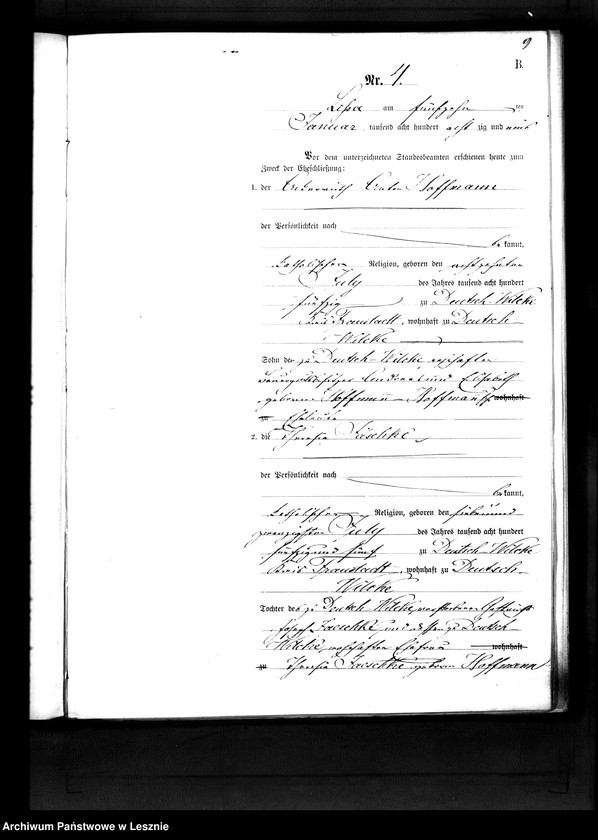 9
B.
Nr. 4.
Lissa am fünfzehn ten
Januar tausend acht hundert acht zig und neun
Vor dem unterzeichneten Standesbeamten erschienen heute zum
Zweck der Eheschließung:
1. der Anton Hoffmann
der Persönlichkeit nach
be kannt,
katholischer Religion, geboren den achtzehnten
July des Jahres tausend acht hundert
fünfzig zu Deutsch-Wilcke
Kreis Fraustadt, wohnhaft zu Deutsch-
Wilcke
Sohn der zu Deutsch-Wilcke wohnhaften
und Elisabeth
geborene Hoffmann Hoffmann'schen wohnhaft
zu Eheleute
2. die Theresia Jäschke
der Persönlichkeit nach
be kannt,
katholischer Religion, geboren den siebenund
zwanzigsten July des Jahres tausend acht hundert
fünfzig und fünf zu Deutsch-Wilcke
Kreis Fraustadt, wohnhaft zu Deutsch-
Wilcke
Tochter des zu Deutsch-Wilcke verstorbenen
Joseph Jaeschke und dessen zu Deutsch
Wilcke wohnhaften Ehefrau wohnhaft
zu Theresia Jaeschke geborene Hoffmann
Archiwum Państwowe w Lesznie